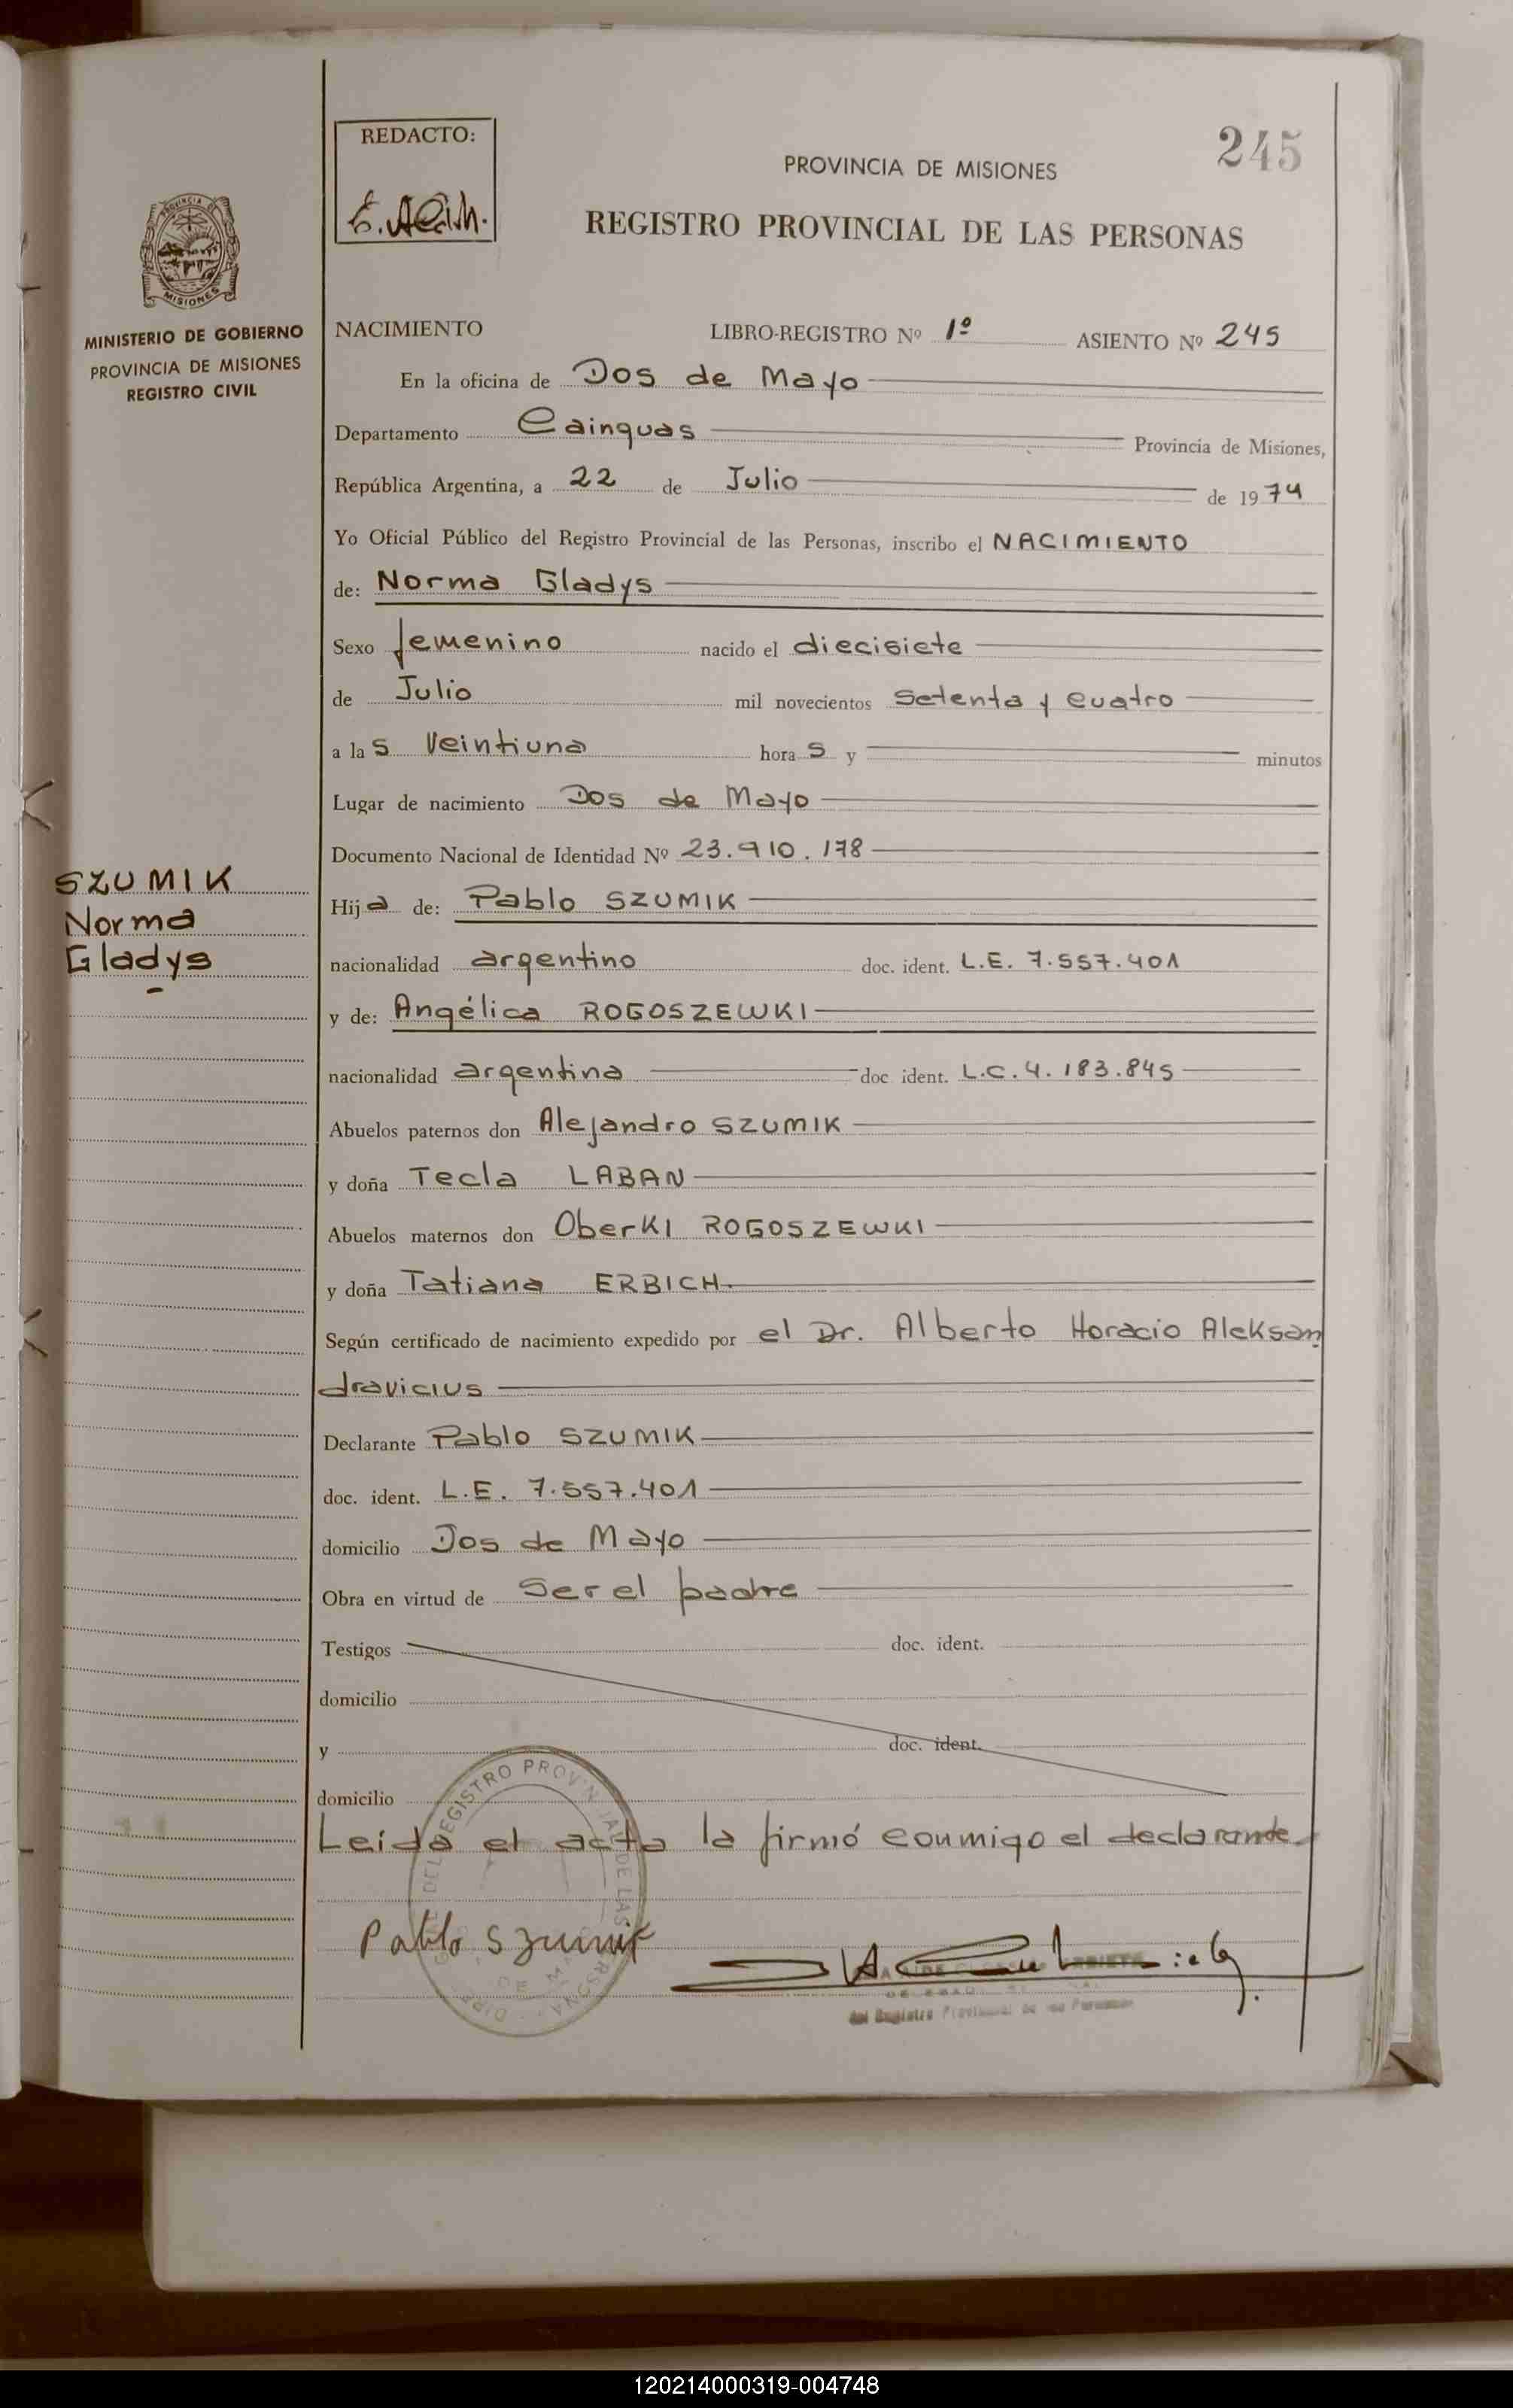 245
REDACTO:
PROVINCIA DE MISIONES
REGISTRO PROVINCIAL DE LAS PERSONAS
MISIONES
MINISTERIO DE GOBIERNO
PROVINCIA DE MISIONES
REGISTRO CIVIL
NACIMIENTO LIBRO-REGISTRO Nº 1º ASIENTO Nº 245
En la oficina de Dos de Mayo
Departamento Cainguas Provincia de Misiones,
República Argentina, a 22 de Julio de 1974
Yo Oficial Público del Registro Provincial de las Personas, inscribo el NACIMIENTO
de: Norma Gladys
Sexo femenino nacido el diecisiete
de Julio mil novecientos Setenta y cuatro
a las Veintiuna horas y minutos
Lugar de nacimiento Dos de Mayo
Documento Nacional de Identidad Nº 23.910.178
SZUMIK
Norma
Gladys
Hija de: Pablo SZUMIK
nacionalidad argentino doc. ident. L.E. 7.557.401
y de: Angélica ROGOSZEWKI
nacionalidad argentina doc. ident. L.C. 4.183.845
Abuelos paternos don Alejandro SZUMIK
y doña Tecla LABAN
Abuelos maternos don Oberki ROGOSZEWKI
y doña Tatiana ERBICH.
Según certificado de nacimiento expedido por el Dr. Alberto Horacio Aleksan
dravicius
Declarante Pablo SZUMIK
doc. ident. L.E. 7.557.401
domicilio Dos de Mayo
Obra en virtud de Ser el padre
Testigos doc. ident.
domicilio
y doc. ident.
domicilio
Leída el acta la firmó conmigo el declarante
Pablo Szumik
del Registro Provincial de las Personas
120214000319-004748